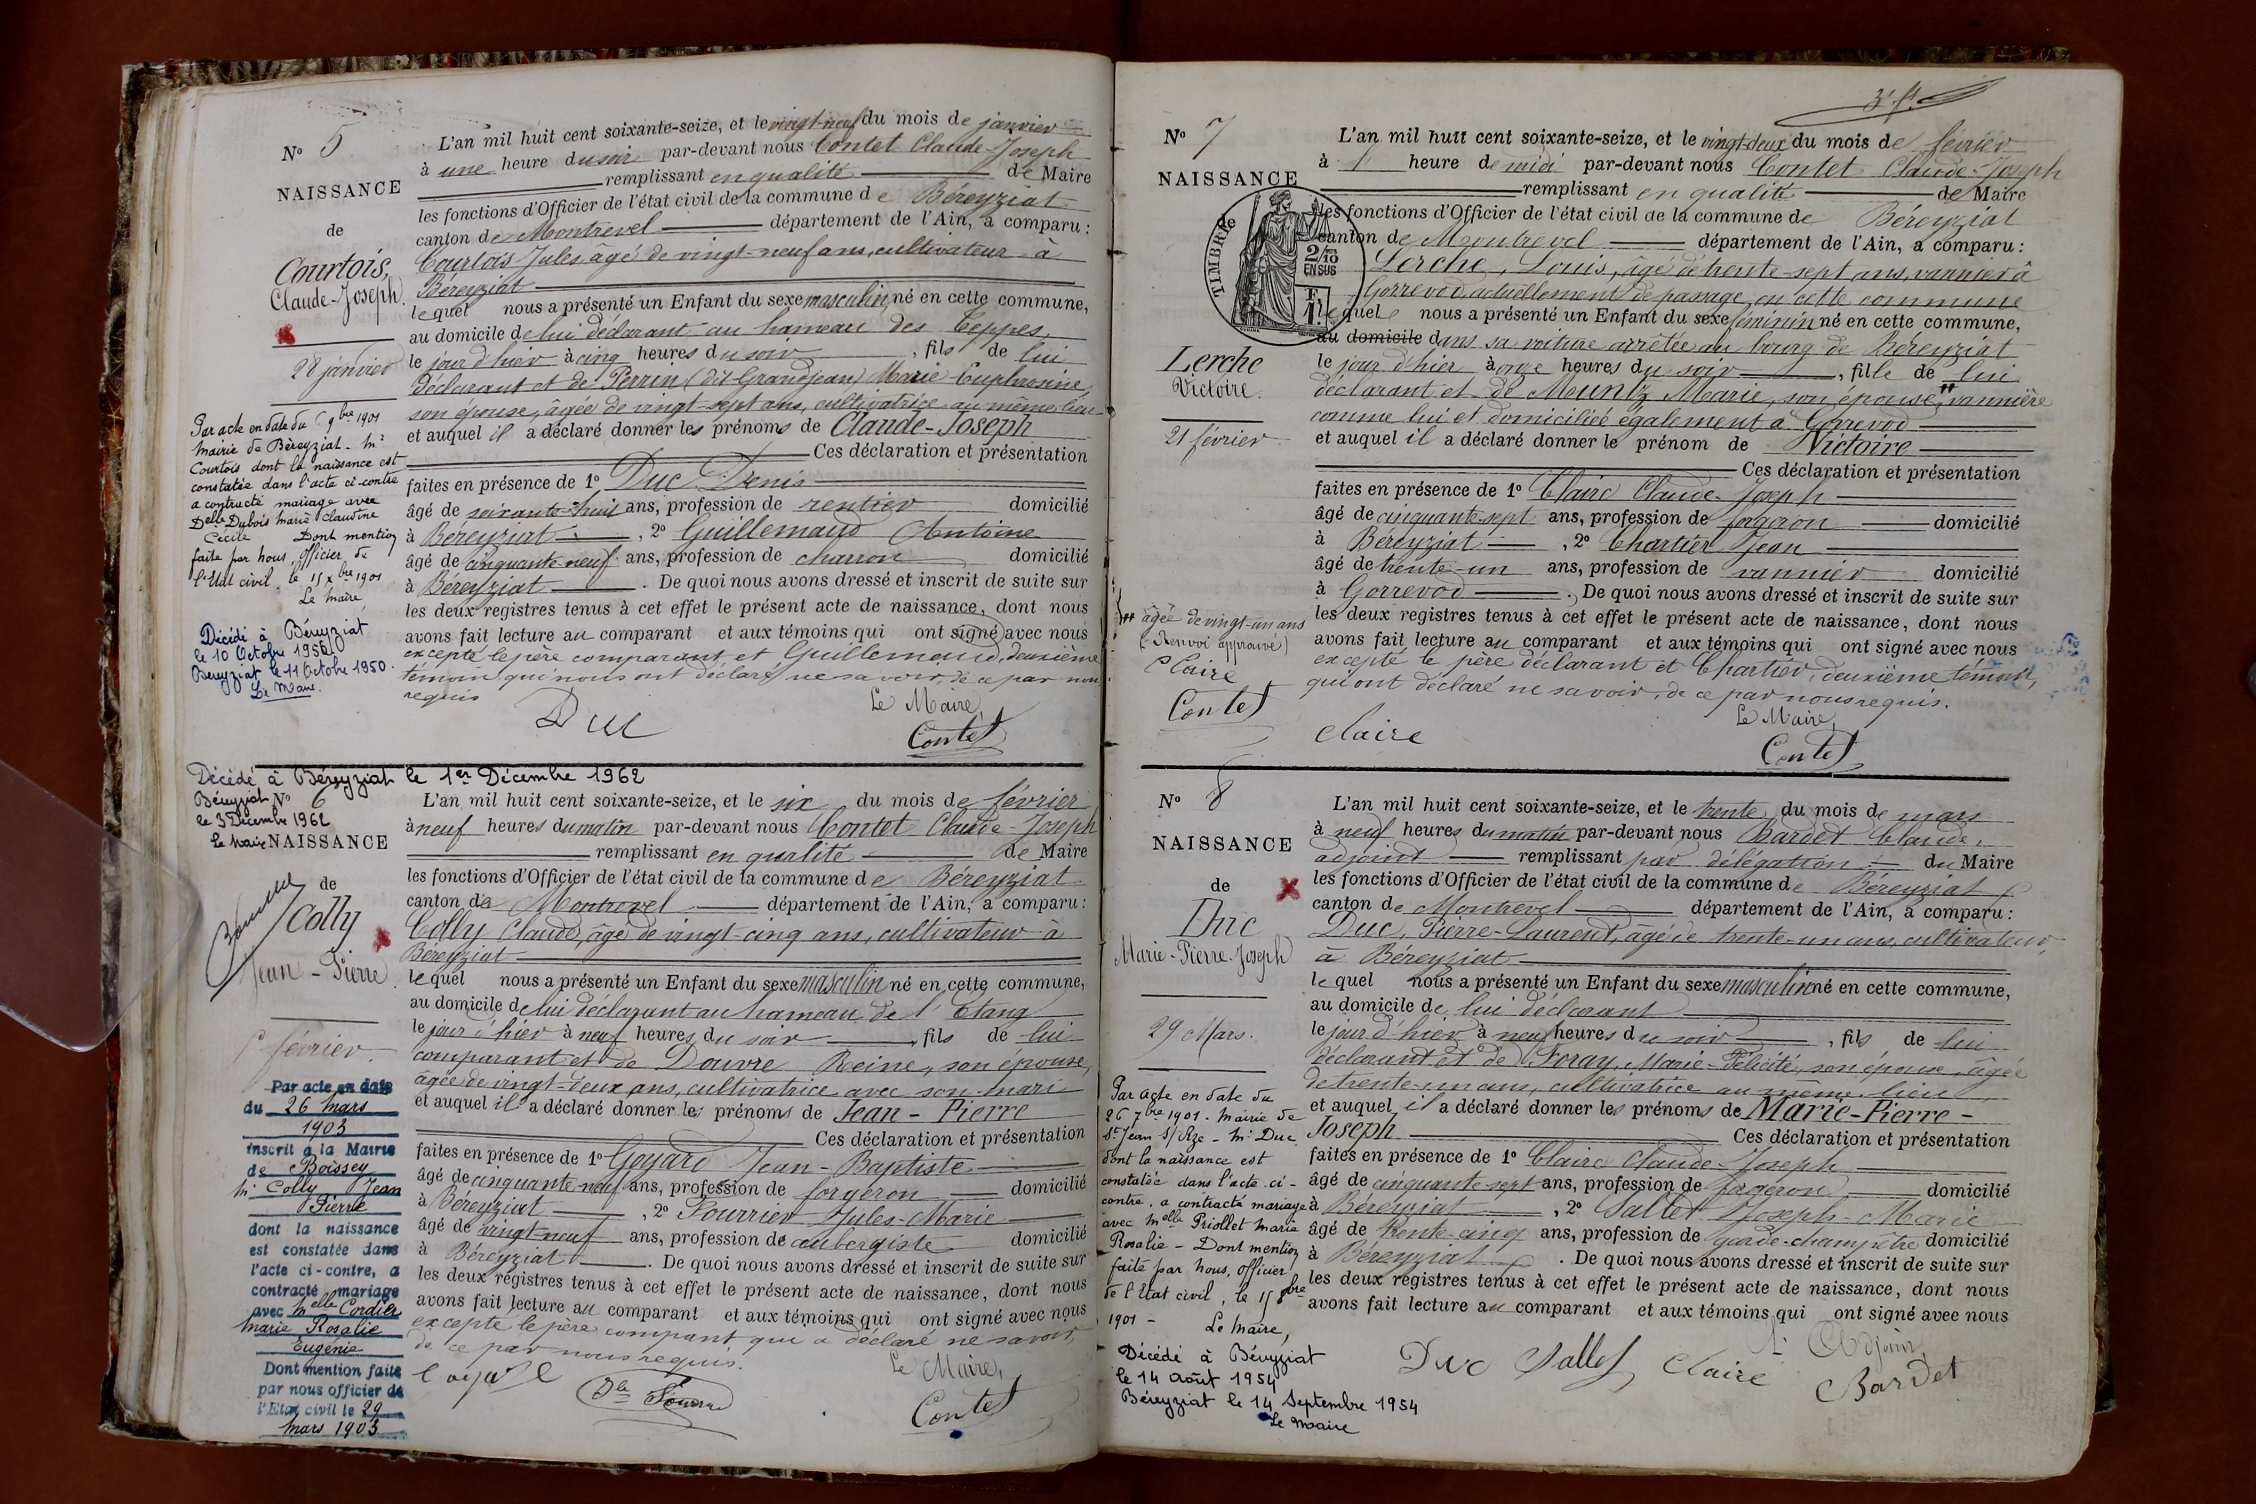 N° 5
NAISSANCE
de
Courtois,
Claude-Joseph.
28 janvier
Par acte en date du 9bre 1901
Mairie de Béreyziat. Mr
Courtois dont la naissance est
constatée dans l'acte ci-contre
a contracté mariage avec
Delle Dubois Marie Claudine
Cécile Dont mention
faite par nous, Officier de
l'Etat civil, le 15 xbre 1901
Le Maire,
Décédé à Béreyziat
le 10 Octobre 1950
Béreyziat le 11 Octobre 1950.
Le Maire.
L'an mil huit cent soixante-seize, et le vingt-neuf du mois de janvier
à une heure du soir par-devant nous Contet Claude-Joseph
remplissant en qualité de Maire
les fonctions d'Officier de l'état civil de la commune de Béreyziat
canton de Montrevel département de l'Ain, a comparu :
Courtois Jules, âgé de vingt-neuf ans, cultivateur à
Béreyziat
lequel nous a présenté un Enfant du sexe masculin né en cette commune,
au domicile de lui déclarant au hameau des Teppes,
le jour d'hier à cinq heures du soir, fils de lui
déclarant et de Perrin (dit Grandjean) Marie Euphrosine
son épouse, âgée de vingt-sept ans, cultivatrice au même lieu
et auquel il a déclaré donner les prénoms de Claude-Joseph
Ces déclaration et présentation
faites en présence de 1° Duc Denis
âgé de soixante-huit ans, profession de rentier domicilié
à Béreyziat, 2° Guillemaud Antoine
âgé de cinquante-neuf ans, profession de charron domicilié
à Béreyziat. De quoi nous avons dressé et inscrit de suite sur
les deux registres tenus à cet effet le présent acte de naissance, dont nous
avons fait lecture au comparant et aux témoins qui ont signé avec nous
excepté le père comparant et Guillemaud, deuxième
témoin qui nous ont déclaré ne savoir, de ce par nous
requis
Le Maire,
Duc Contet
Décédé à Béreyziat le 1er Décembre 1962
Béreyziat
le 3 Décembre 1962
Le Maire
N° 6
NAISSANCE
de
Colly
Jean-Pierre.
février.
Par acte en date
du 26 Mars
1903
inscrit à la Mairie
de Boissey
Mr Colly Jean
Pierre
dont la naissance
est constatée dans
l'acte ci-contre, a
contracté mariage
avec Melle Cordier
Marie Rosalie
Eugénie
Dont mention faite
par nous officier de
l'Etat civil le 29
Mars 1903
L'an mil huit cent soixante-seize, et le six du mois de février
à neuf heures du matin par-devant nous Contet Claude-Joseph
remplissant en qualité de Maire
les fonctions d'Officier de l'état civil de la commune de Béreyziat
canton de Montrevel département de l'Ain, a comparu :
Colly Claude, âgé de vingt-cinq ans, cultivateur à
Béreyziat
lequel nous a présenté un Enfant du sexe masculin né en cette commune,
au domicile de lui déclarant au hameau de l'Etang
le jour d'hier à neuf heures du soir, fils de lui
comparant et de Douvre Reine, son épouse,
âgée de vingt-deux ans, cultivatrice avec son mari
et auquel il a déclaré donner les prénoms de Jean-Pierre
Ces déclaration et présentation
faites en présence de 1° Goyard Jean-Baptiste
âgé de cinquante-neuf ans, profession de forgeron domicilié
à Béreyziat, 2° Fourrier Jules-Marie
âgé de vingt-neuf ans, profession de aubergiste domicilié
à Béreyziat. De quoi nous avons dressé et inscrit de suite sur
les deux registres tenus à cet effet le présent acte de naissance, dont nous
avons fait lecture au comparant et aux témoins qui ont signé avec nous
excepté le père compant qui a déclaré ne savoir,
de ce par nous requis.
Le Maire,
Contet
3e ft
N° 7
NAISSANCE
de
TIMBRE
2/10
EN SUS
Lerche
Victoire.
21 février
âgée de vingt-un ans
(Renvoi approuvé)
Claire
Contet
L'an mil huit cent soixante-seize, et le vingt-deux du mois de février
à 1 heure de midi par-devant nous Contet Claude-Joseph
remplissant en qualité de Maire
les fonctions d'Officier de l'état civil de la commune de Béreyziat
canton de Montrevel département de l'Ain, a comparu :
Lerche, Louis, âgé de trente-sept ans, vannier à
Gorrevod, actuellement de passage en cette commune
lequel nous a présenté un Enfant du sexe féminin né en cette commune,
au domicile dans sa voiture arrêtée au bourg de Béreyziat
le jour d'hier à onze heures du soir, fille de lui
déclarant et de Meuntz Marie, son épouse, vannière
comme lui et domiciliée également à Gorrevod
et auquel il a déclaré donner le prénom de Victoire
Ces déclaration et présentation
faites en présence de 1° Claire Claude-Joseph
âgé de cinquante-sept ans, profession de forgeron domicilié
à Béreyziat, 2° Chartier Jean
âgé de trente-un ans, profession de vannier domicilié
à Gorrevod. De quoi nous avons dressé et inscrit de suite sur
les deux registres tenus à cet effet le présent acte de naissance, dont nous
avons fait lecture au comparant et aux témoins qui ont signé avec nous
excepté le père déclarant et Chartier, deuxième témoin,
qui ont déclaré ne savoir, de ce par nous requis.
Le Maire,
Claire Contet
N° 8
NAISSANCE
de
Duc
Marie-Pierre-Joseph
29 Mars.
Par acte en date du
26 7bre 1901. Mairie de
St Jean s/ Rze - Mr Duc
dont la naissance est
constatée dans l'acte ci-
contre, a contracté mariage
avec Melle Priollet Marie
Rosalie - Dont mention
faite par nous, Officier
de l'Etat civil, le 15 8bre
1901 - Le Maire,
Décédé à Béreyziat
le 14 Août 1954
Béreyziat le 14 Septembre 1954
Le Maire
L'an mil huit cent soixante-seize, et le trente du mois de mars
à neuf heures du matin par-devant nous Bardet Claude,
adjoint remplissant par délégation du Maire
les fonctions d'Officier de l'état civil de la commune de Béreyziat
canton de Montrevel département de l'Ain, a comparu :
Duc, Pierre-Laurent, âgé de trente-un ans, cultivateur,
à Béreyziat
lequel nous a présenté un Enfant du sexe masculin né en cette commune,
au domicile de lui déclarant
le jour d'hier à neuf heures du soir, fils de lui
déclarant et de Foray, Marie-Félicité, son épouse, âgée
de trente-un ans, cultivatrice au même lieu
et auquel il a déclaré donner les prénoms de Marie-Pierre-
Joseph Ces déclaration et présentation
faites en présence de 1° Claire Claude-Joseph
âgé de cinquante-sept ans, profession de forgeron domicilié
à Béreyziat, 2° Sallet Joseph-Marie
âgé de trente-cinq ans, profession de garde-champêtre domicilié
à Béreyziat. De quoi nous avons dressé et inscrit de suite sur
les deux registres tenus à cet effet le présent acte de naissance, dont nous
avons fait lecture au comparant et aux témoins qui ont signé avec nous
L'Adjoint,
Duc Sallet Claire Bardet